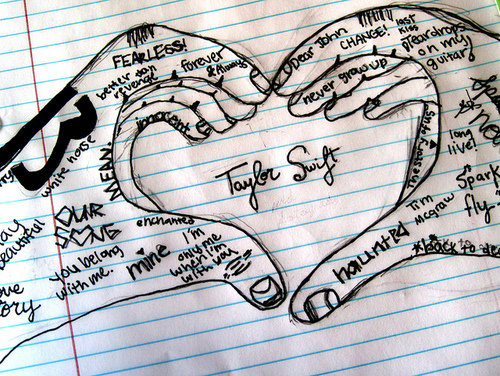 FEARLESS!
better than
revenge
forever
& Always
Dear John
CHANGE!
last
kiss
teardrops
on my
guitar
never grow up
innocent
MEAN.
white horse
Taylor Swift
long
live!
Spark
fly.
Tim
Mcgraw
enchanted
OUR
SONG
You belong
with me.
mine
I'm
only me
when I'm
with you
haunted
back to de
beautiful
ove
tory